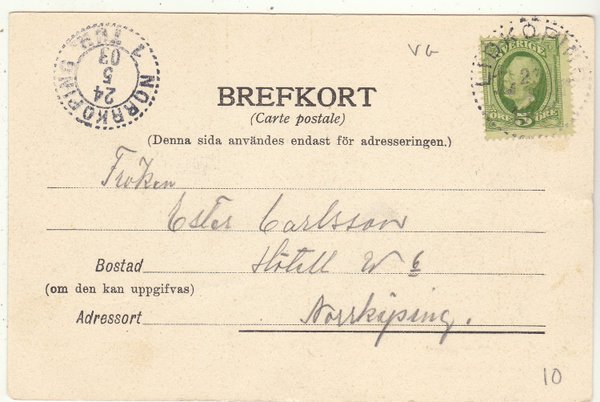 VG
NORRKÖPING 1 TUR
24
5
03
LINKÖPING
23
SVERIGE
5
ÖRE
BREFKORT
(Carte postale)
(Denna sida användes endast för adresseringen.)
Fröken
Ester Carlsson
Bostad Hôtell W 6
(om den kan uppgifvas)
Adressort Norrköping.
10